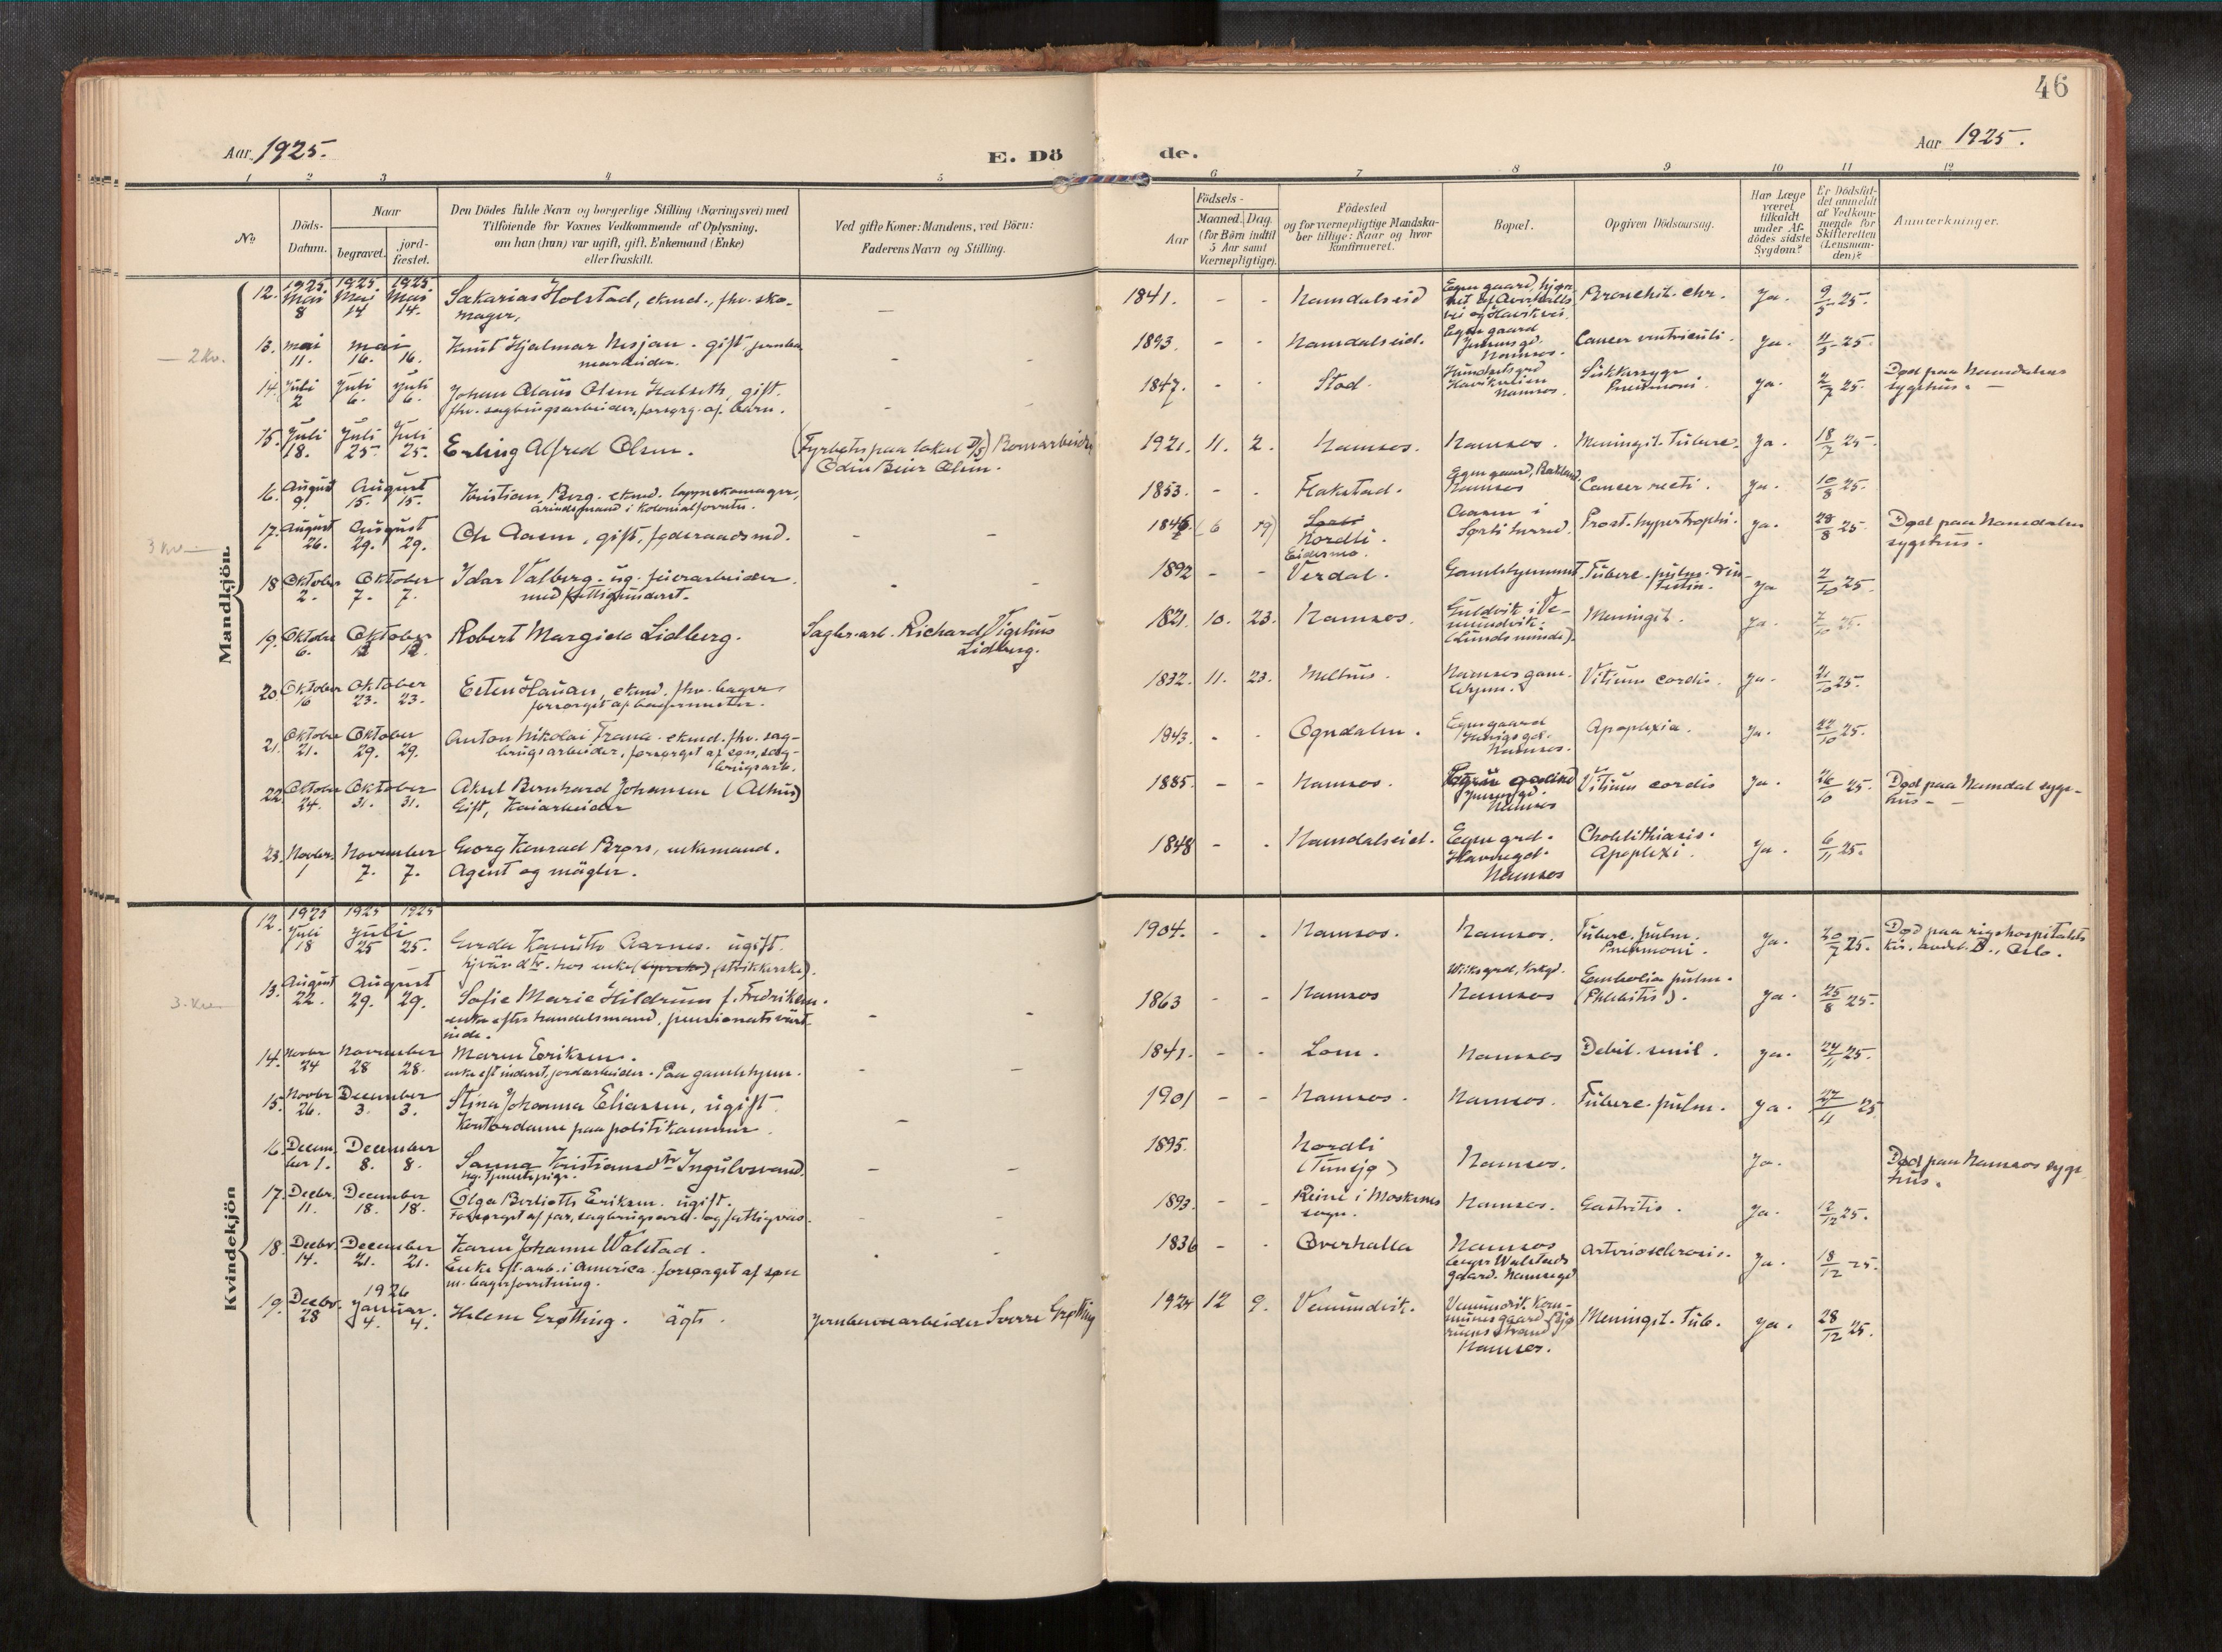 46
Aar 1925.
E. Döde.
Aar 1925.
1 2 3 4 5 6 7 8 9 10 11 12
No
Döds-Datum.
Naar
begravet.
jord-fæstet.
Den Dödes fulde Navn og borgerlige Stilling (Næringsvei) med
Tilföiende for Voxnes Vedkommende af Oplysning,
om han (hun) var ugift, gift, Enkemand (Enke)
eller fraskilt.
Ved gifte Koner: Mandens, ved Börn:
Faderens Navn og Stilling.
Födsels-
Aar
Maaned. Dag.
(for Börn indtil
5 Aar samt
Værnepligtige).
Födested
og for værnepligtige Mandska-
ber tillige: Naar og hvor
konfirmeret.
Bopæl.
Opgiven Dödsaarsag.
Har Læge
været
tilkaldt
under Af-
dödes sidste
Sygdom?
Er Dödsfal-
det anmeldt
af Vedkom-
mende for
Skifteretten
(Lensman-
den)?
Anmærkninger.
Mandkjön
12. 1925 Mai 8 1925 Mai 14 1925 Mai 14. Sakarias Holstad, ekmd., fhv. sko-
mager. – 1841. - - Namdalseid Bronchit. chr. Ja. 9/5 25.
– 2 kv.
13. mai 11. mai 16. 16. Knut Hjalmar Nesjan - gift, - - 1893. - - Namdalseid. Egen gaard Namsos. Cancer ventriculi. Ja. 11/5 25.
14. Juli 2 Juli 6. Juli 6. Johan Olaus Olsen Halseth, gift.
fhv. sagbrugsarbeider, forsørg. af barn. - - 1847. - - Stad. Namsos. Sukkersyge
Pneumoni. Ja. 2/7 25. Død paa Namdalens
sygehus. –
15. Juli 18. Juli 25 Juli 25. Erling Alfred Olsen. 1921. 11. 2. Namsos. Namsos. Meningit. Tuberc. Ja. 18/7 25.
16. August 9. August 15. 15. Kristian Berg. ekmd. lappeskomager,
1853. - - Flakstad. Namsos Cancer recti. Ja. 10/8 25.
3 kv –
17. August 26. August 29. 29. Ole Aasen, gift, føderaadsmd. - - (6 19) Nordli. Aasen i Prost. hypertrophi. Ja. 28/8 25. Død paa Namdalen
sygehus.
18 Oktober 2. Oktober 7. 7. Idar Valberg. ug. feierarbeider
- - 1892 - - Verdal. Gamlehjemmet Tuberc. pulm. Ja 2/10 25.
19. Oktober 6. Oktober 12 12. Robert Margido Lidberg. Sagbr.arb. Richard Vigelius
Lidberg. 10. 23. Namsos. Meningit. Ja. 7/10 25.
20 Oktober 16 Oktober 23. 23. Hanan, ekmd. fhv. bager
1832. 11. 23. Melhus. Namsos gam. Vitium cordis. Ja. 21/10 25.
21. Oktober 21. Oktober 29. 29. Anton Nikolai Frana. ekmd. fhv. sag-
brugsarbeider, forsørget af søn, sag-
brugsarb. 1843. - - Ogndalen. Namsos. Apoplexia. Ja. 22/10 25.
22 Oktober 24. Oktober 31. 31. Aksel Bernhard Johansen
Gift, Kaiarbeider 1885. - - Namsos. Namsos Vitium cordis Ja. 26/10 25. Død paa Namdal syge-
hus –
23. Novbr. 1 November 7. 7. Georg Konrad Brørs, enkemand.
Agent og mägler. 1848 - - Namdalseid. Egen grd.
Havnegd.
Namsos Cholelithiasis.
Apoplexi. Ja. 6/11 25.
Kvindekjön
12. 1925 Juli 18 1925 Juli 25 1925 25. Gerda Kamitto Aarnes. ugift.
1904. - - Namsos. Namsos. Tuberc. pulm.
Pneumoni. Ja. 20/7 25. Død paa rigshospitalets
kir. avdel. B., Oslo.
3. kv
13. August 22. August 29. 29. Sofie Marie Hildrum f. Fredriksen.
enke efter handelsmand, pensionatsvärt-
inde. - - 1863 - - Namsos Namsos Embolia pulm.
(Phlebitis). Ja. 25/8 25.
14. Novbr 24 November 28 28. Maren Eriksen.
- - 1841. - - Lom. Namsos Debil. senil. Ja. 24/11 25.
15. Novbr 26. December 3. 3. Stina Johanna Eliassen, ugift.
Kontordame paa politikammer. - 1901 - - Namsos. Namsos. Tuberc. pulm. Ja. 27/11 25
16. Decem-ber 1. December 8. 8. Sanna Kristiansdtr. Ingulsvand.
- - 1895. Nordli
(Tunsjø) Namsos. Ja. Død paa Namsos syge
hus.
17. Decbr. 11. December 18. 18. Olga Berliotte Eriksen. ugift.
Forsørget af far, sagbrugsarb. og fattigväs. - - 1893. - - Reine i Moskenes
sogn. Namsos. Gastritis. Ja. 12/12 25.
18. Decbr. 14. December 21. 21. Karen Johanne Walstad.
Enke eft. arb. i America. forsørget af søn
m. bagerforretning. - - 1836 - - Overhalla Namsos
Arteriosclerosis. Ja. 18/12 25.
19. Decbr. 28 1926 Januar. 4. 4. Helene Grøtting. ägte. Jernbanearbeider Sverre Grøtting 1924 12 9. Vemundvik. Namsos. Meningit. Tub. Ja. 28/12 25.